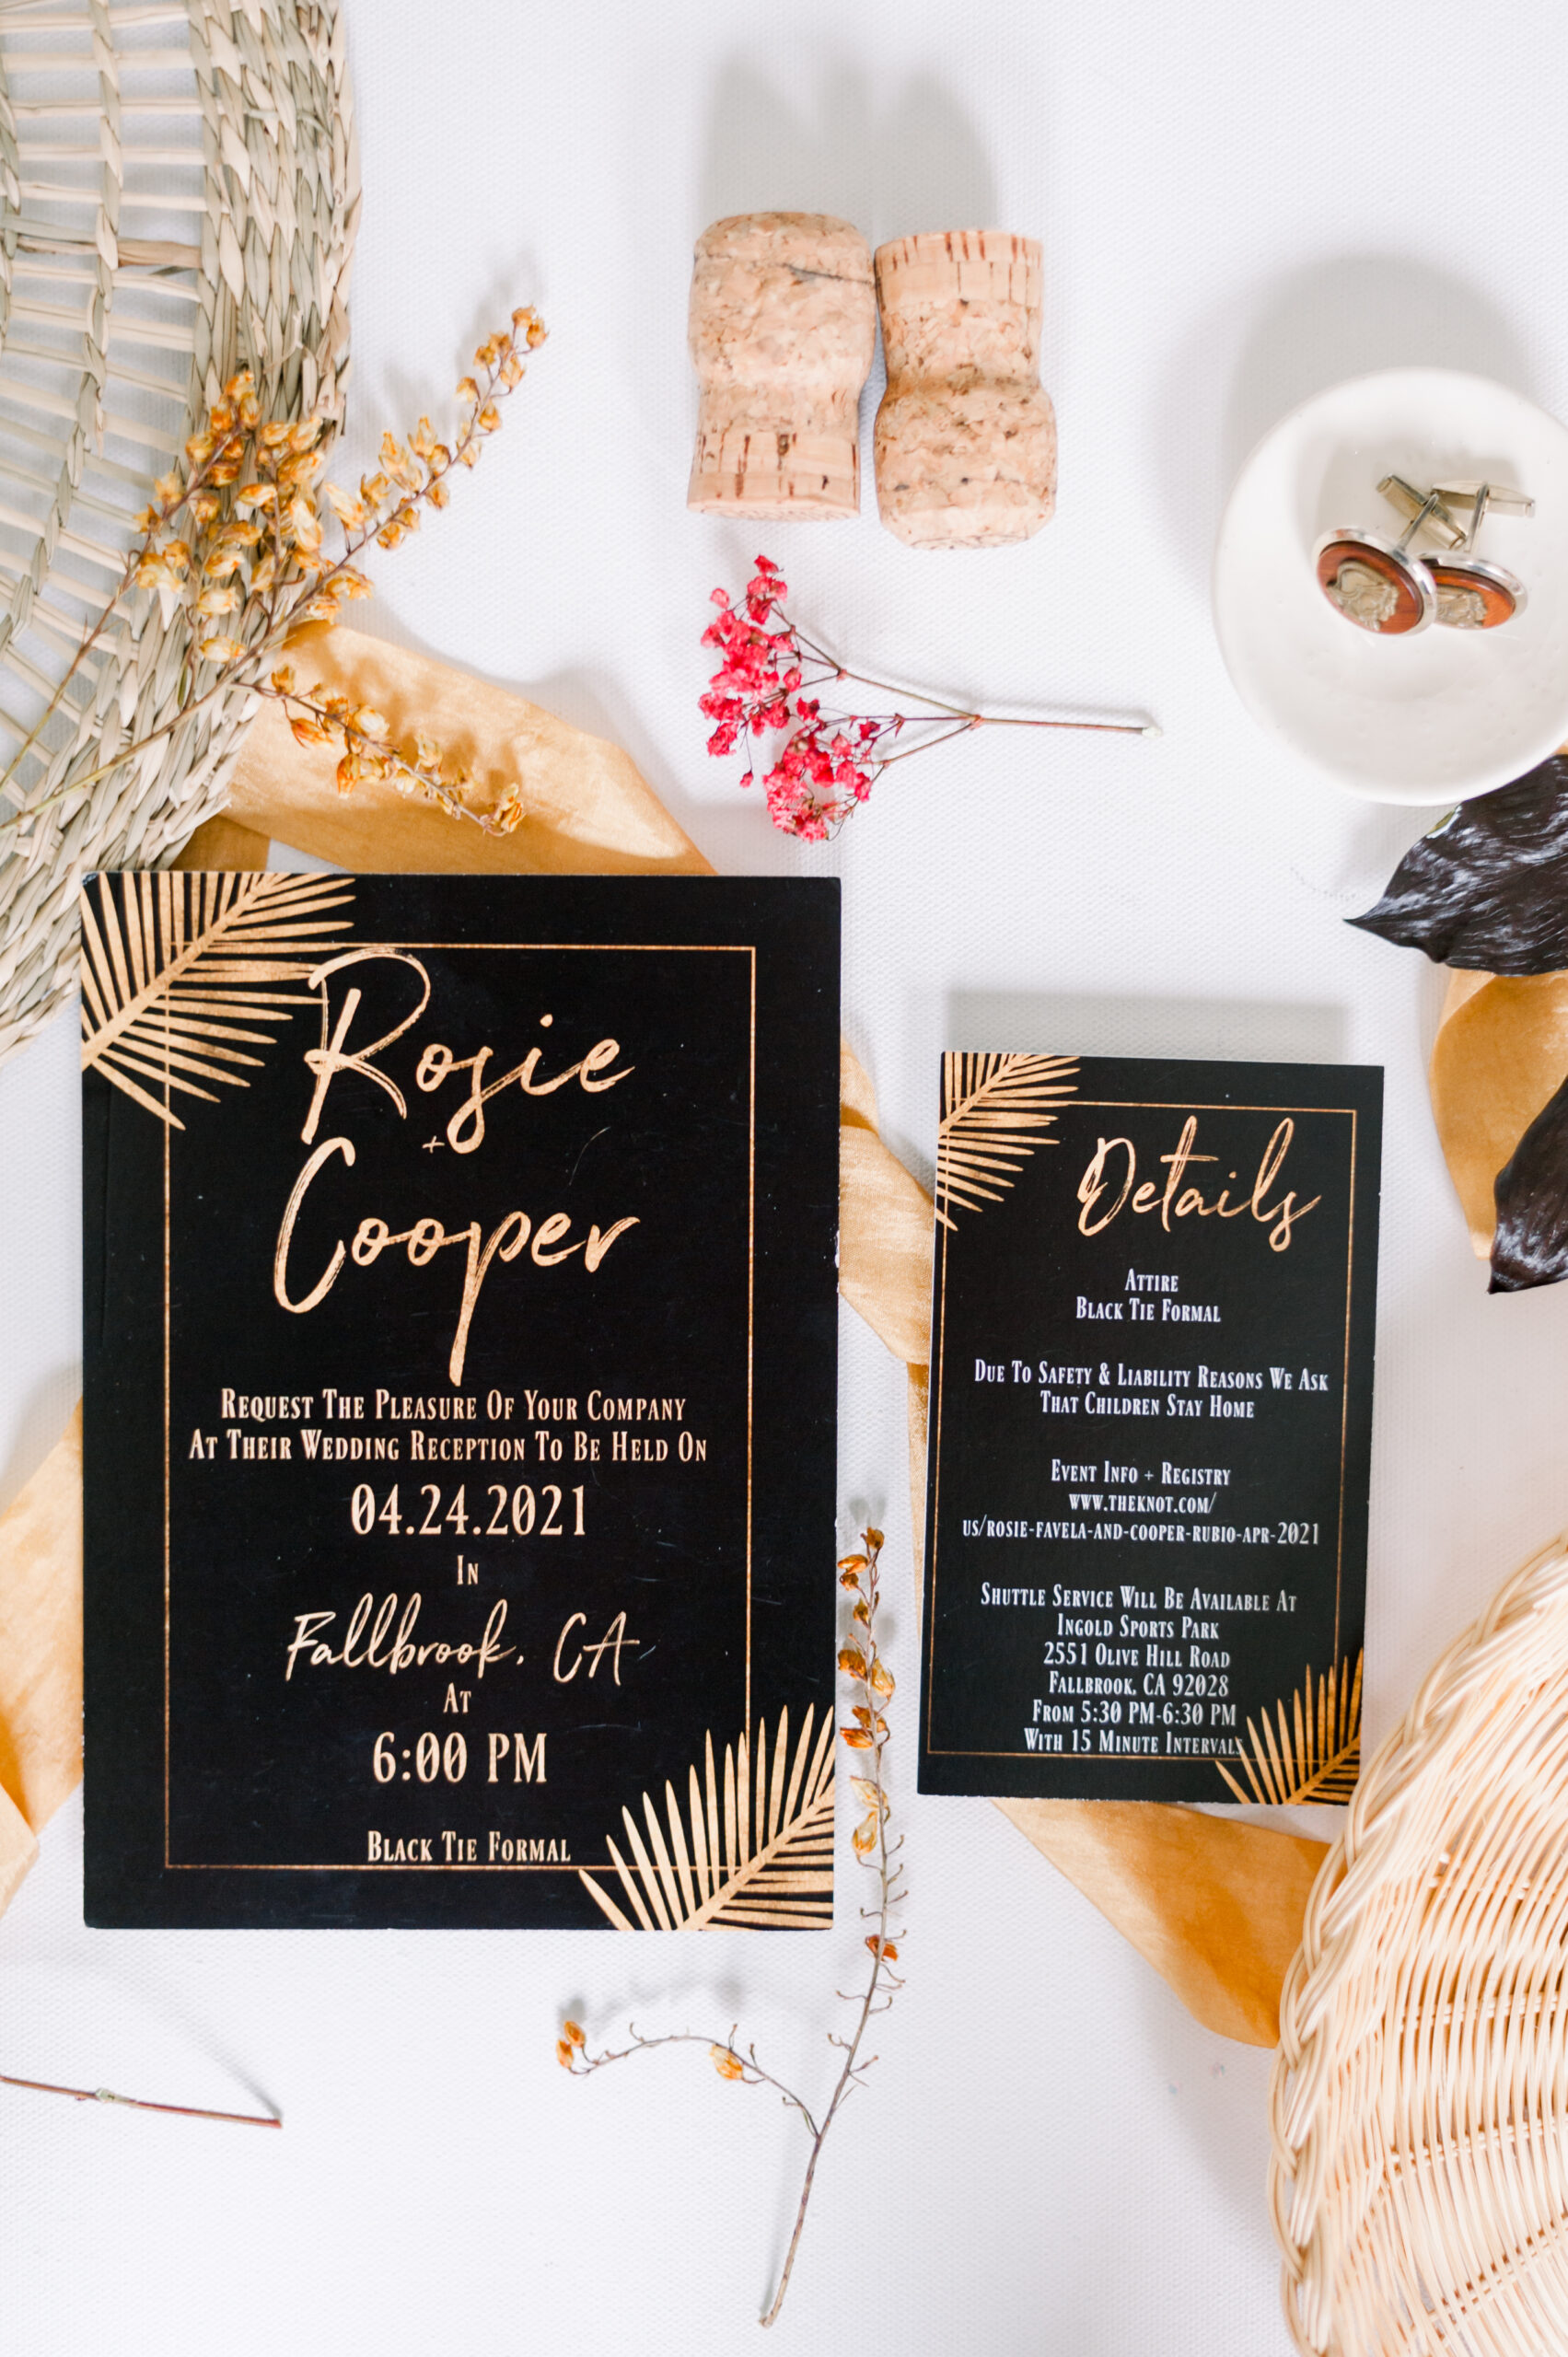 Rosie
+
Cooper
Request The Pleasure Of Your Company
At Their Wedding Reception To Be Held On
04.24.2021
In
Fallbrook, CA
At
6:00 PM
Black Tie Formal
Details
Attire
Black Tie Formal
Due To Safety & Liability Reasons We Ask
That Children Stay Home
Event Info + Registry
www.theknot.com/
us/rosie-favela-and-cooper-rubio-apr-2021
Shuttle Service Will Be Available At
Ingold Sports Park
2551 Olive Hill Road
Fallbrook, CA 92028
From 5:30 PM-6:30 PM
With 15 Minute Intervals